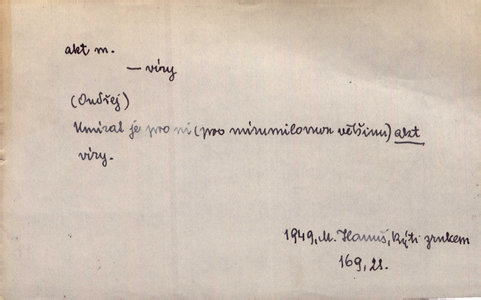 akt m.
— víry
(Ondřej)
Umíral je pro ni (pro mírumilovnou většinu) akt
víry.
1949, M. Hanuš,
169, 21.